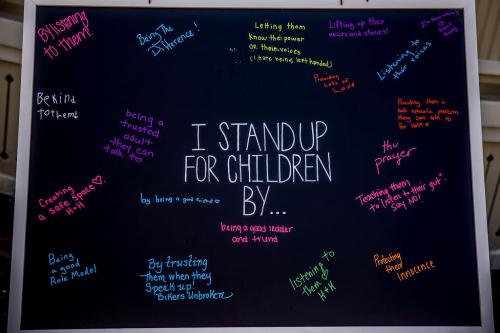 By listening
to them!
Being The
Difference!
Letting them
Know the power
OF their voices
Lifting up their
voices and stories!
Listening to
their voices
Providing
Lots of
Love
Be kind
to them!
being a
trusted
adult
they can
talk to
I STAND UP
FOR CHILDREN
BY...
Providing them a
safe person
they can talk to
for help
thru
prayer
Creating
a safe space
H+H
by being a good friend
Teaching them
to "listen to their gut".
SAY NO!
being a good leader
and friend
Being
a good
Role Model
By trusting
Them when they
Speak up!
Bikers Unbroken
listening to
them
H+H
Protecting
their
Innocence